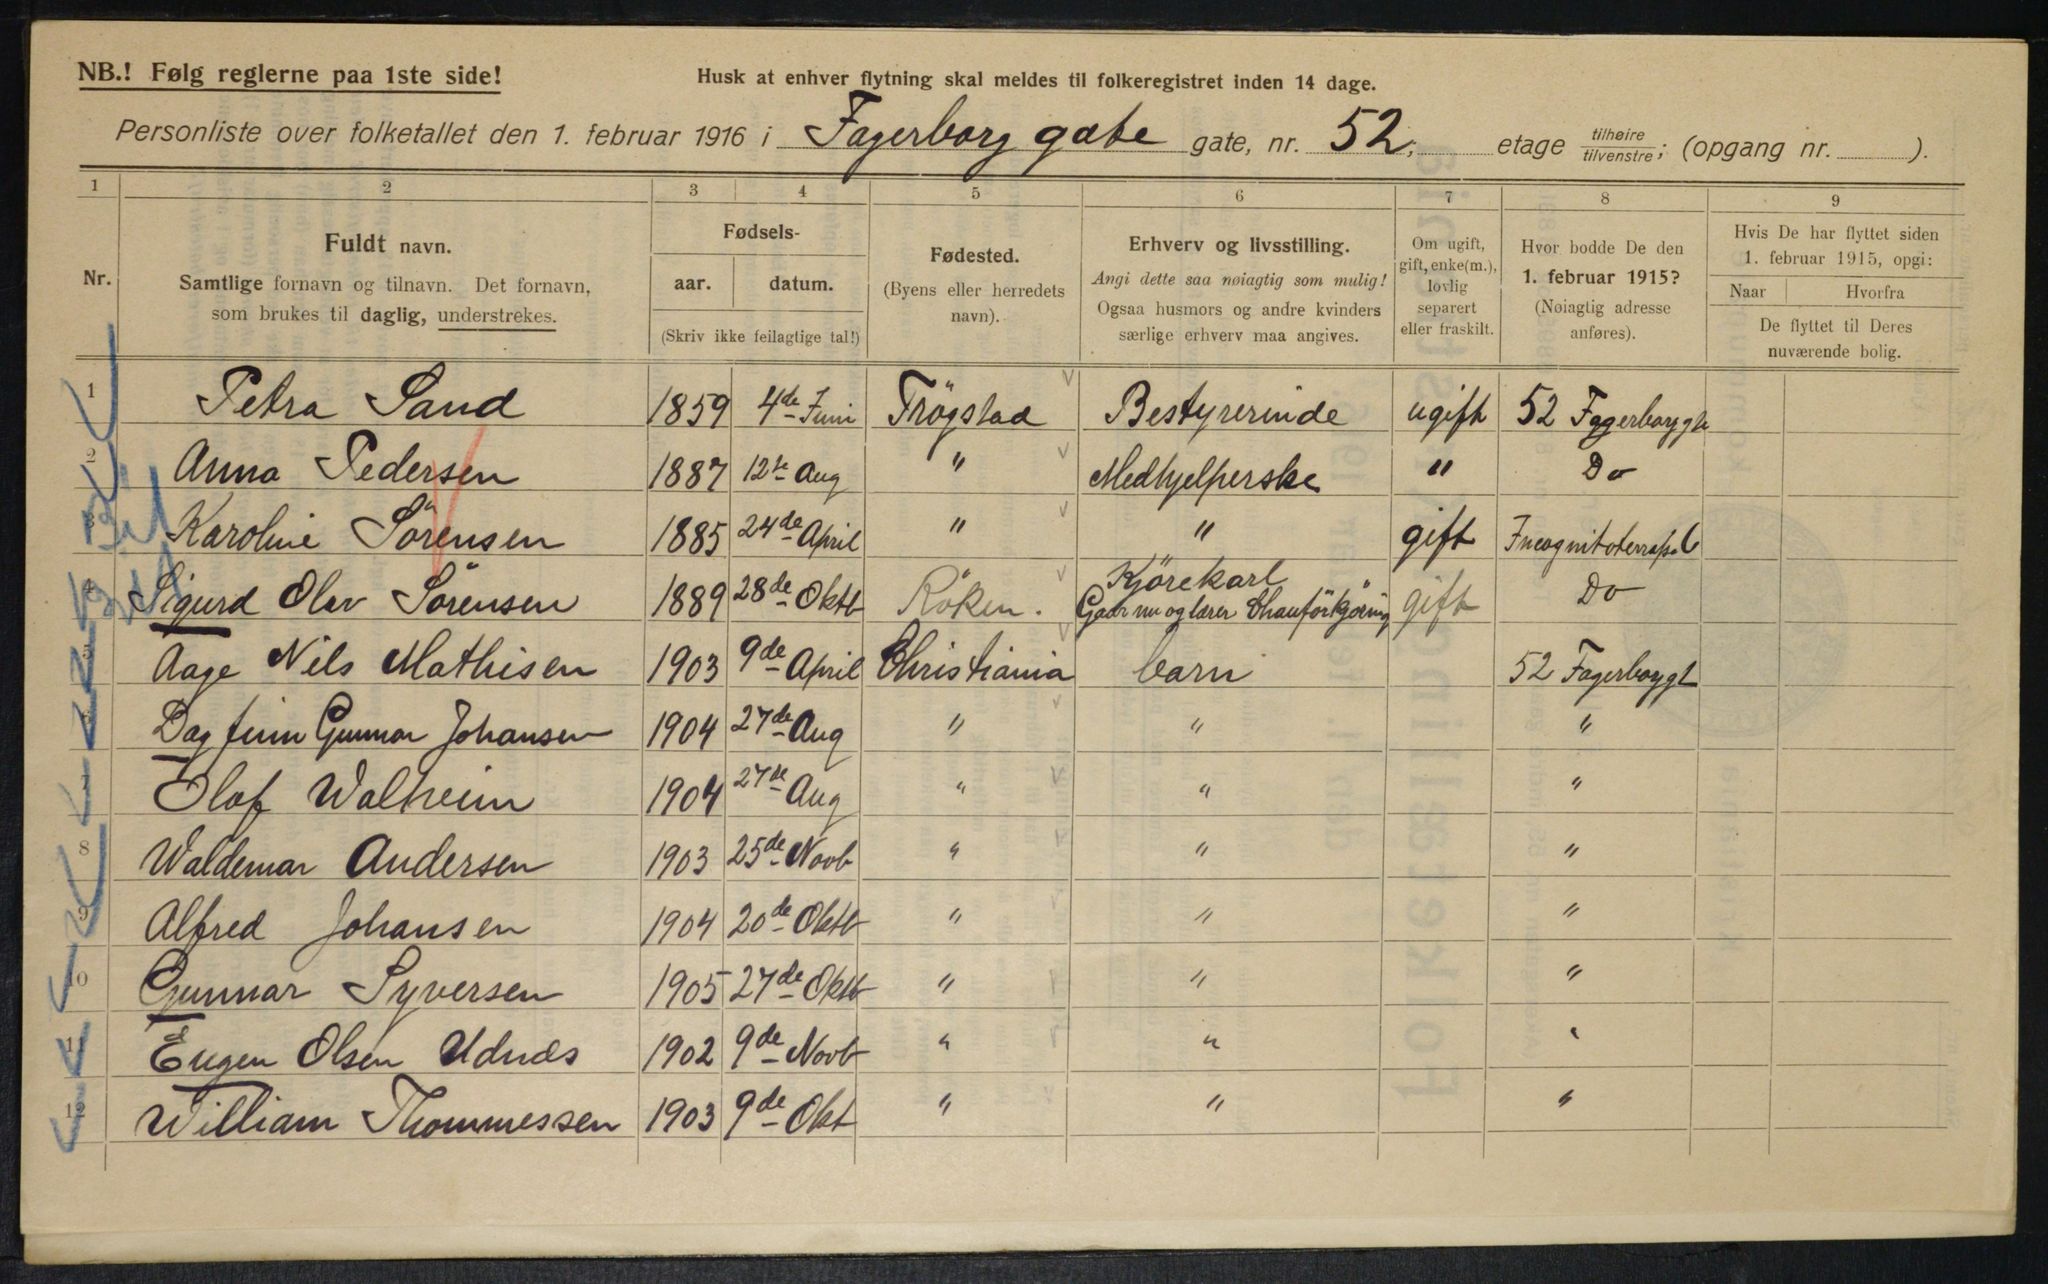 NB.! Følg reglerne paa 1ste side!
Husk at enhver flytning skal meldes til folkeregistret inden 14 dage.
Personliste over folketallet den 1. februar 1916 i Fagerborg gate gate, nr. 52; etage tilhøire/tilvenstre; (opgang nr. ).
1 2 3 4 5 6 7 8 9
Nr.
Fuldt navn.
Samtlige fornavn og tilnavn. Det fornavn,
som brukes til daglig, understrekes.
Fødsels-
aar. datum.
(Skriv ikke feilagtige tal!)
Fødested.
(Byens eller herredets
navn).
Erhverv og livsstilling.
Angi dette saa nøiagtig som mulig!
Ogsaa husmors og andre kvinders
særlige erhverv maa angives.
Om ugift,
gift, enke(m.),
lovlig
separert
eller fraskilt.
Hvor bodde De den
1. februar 1915?
(Nøiagtig adresse
anføres).
Hvis De har flyttet siden
1. februar 1915, opgi:
Naar Hvorfra
De flyttet til Deres
nuværende bolig.
1 Petra Sand 1859 4de Juni Trögstad Bestyrerinde ugift 52 Fagerborggt
2 Anna Pedersen 1887 12te Aug " Medhjelperske " Do
3 Karoline Sörensen 1885 24de April " " gift
4 Sigurd Olav Sörensen 1889 28de Oktb Röken. Kjörekarl gift Do
Gaar nu og lærer Chauförkjöring
5 Aage Nils Mathisen 1903 9de April Christiania barn 52 Fagerborggt
6 Dagfinn Gunnar Johansen 1904 27de Aug " " "
7 Olaf Walheim 1904 27de Aug " " "
8 Waldemar Andersen 1903 25de Novb " " "
9 Alfred Johansen 1904 20de Oktb " " "
10 Gunnar Syversen 1905 27de Oktb " " "
11 Eugen Olsen Udnæs 1902 9de Novb " " "
12 William Thommessen 1903 9de Okt " " "